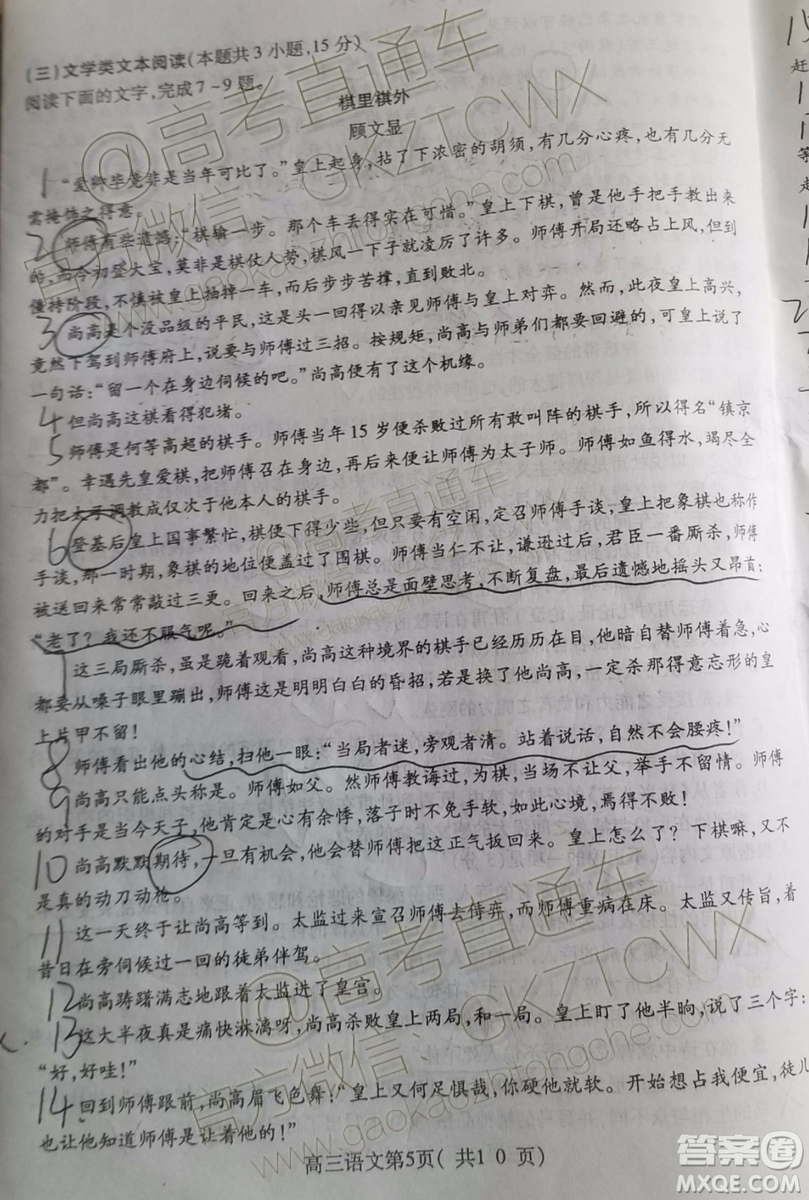 (三)文学类文本阅读(本题共3小题,15分)
阅读下面的文字,完成7~9题。
棋里棋外
顾文显
1 “爱卿毕竟非是当年可比了。”皇上起身,拈了下浓密的胡须,有几分心疼,也有几分无
需掩饰之得意。
2 师傅有些遗憾:“棋输一步。那个车丢得实在可惜。”皇上下棋,曾是他手把手教出来
的,而今初登大宝,莫非是棋仗人势,棋风一下子就凌厉了许多。师傅开局还略占上风,但到
僵持阶段,不慎被皇上抽掉一车,而后步步苦撑,直到败北。
3 尚高是个没品级的平民,这是头一回得以亲见师傅与皇上对弈。然而,此夜皇上高兴,
竟然下驾到师傅府上,说要与师傅过三招。按规矩,尚高与师弟们都要回避的,可皇上说了
一句话:“留一个在身边伺候的吧。”尚高有了这个机缘。
4 但尚高这棋看得犯堵。
5 师傅是何等高超的棋手。师傅当年15岁便杀败过所有敢叫阵的棋手,所以得名“镇京
都”。幸遇先皇爱棋,把师傅召在身边,再后来便让师傅为太子师。师傅如鱼得水,竭尽全
力把太子调教成仅次于他本人的棋手。
6 登基后皇上国事繁忙,棋便下得少些,但只要有空闲,定召师傅手谈,皇上把象棋也称作
手谈,那一时期,象棋的地位便盖过了围棋。师傅当仁不让,谦逊过后,君臣一番厮杀,师傅
被送回来常常敲过三更。回来之后,师傅总是面壁思考,不断复盘,最后遗憾地摇头又昂首:
“老了?我还不服气呢。”
7 这三局厮杀,虽是跪着观看,尚高这种境界的棋手已经历历在目,他暗自替师傅着急,心
都要从嗓子眼里蹦出,师傅这是明明白白的昏招,若是换了他尚高,一定杀那得意忘形的皇
上片甲不留!
8 师傅看出他的心结,扫他一眼:“当局者迷,旁观者清。站着说话,自然不会腰疼!”
9 尚高只能点头称是。师傅如父。然师傅教诲过,为棋,当场不让父,举手不留情。师傅
的对手是当今天子,他肯定是心有余悸,落子时不免手软,如此心境,焉得不败!
10 尚高默默期待,一旦有机会,他会替师傅把这正气扳回来。皇上怎么了?下棋嘛,又不
是真的动刀动枪。
11 这一天终于让尚高等到。太监过来宣召师傅去侍弈,而师傅重病在床。太监又传旨,着
昔日在旁伺候过一回的徒弟伴驾。
12 尚高踌躇满志地跟着太监进了皇宫。
13 这大半夜真是痛快淋漓呀,尚高杀败皇上两局,和一局。皇上盯了他半晌,说了三个字:
“好,好哇!”
14 回到师傅跟前,尚高眉飞色舞:“皇上又何足惧哉,你硬他就软。开始想占我便宜,徒儿
也让他知道师傅是让着他的!”
高三语文第5页( 共1 0 页)
@高考直通车
官方微信:GKZTCWX
www.gaokaozhitongche.com
答案圈
MXQE.COM